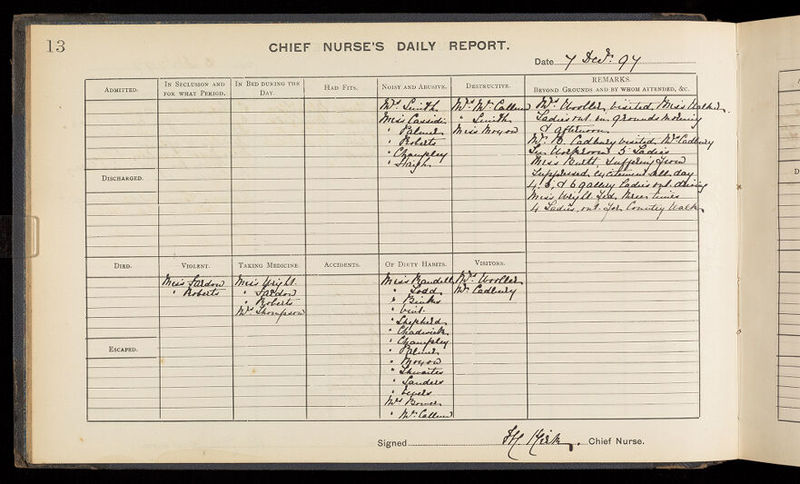 13
CHIEF NURSE'S DAILY REPORT.
Date 7 Decr. 97
ADMITTED.
IN SECLUSION AND FOR WHAT PERIOD.
IN BED DURING THE DAY.
HAD FITS.
NOISY AND ABUSIVE.
Mrs Smith
Miss Cassidi
" Palmer
" Roberts
" Champley
" Haigh
DESTRUCTIVE.
Mrs McCallum
" Smith
Miss Moxon
REMARKS.
BEYOND GROUNDS AND BY WHOM ATTENDED, &C.
Mrs Woollen visited, Miss Walker.
Ladies out in grounds morning
& afternoon.
Mr B. Cadbury visited Mrs Cadbury
In Workroom 5 Ladies
Miss Buett suffering from
Suppressed excitement all day
4. 5, & 6 gallery Ladies out driving
Miss Wright fed three times
4 Ladies, out for Country Walk.
DISCHARGED.
DIED.
VIOLENT.
Miss Sardow
" Roberts
TAKING MEDICINE.
Miss Wright
" Sardow
" Roberts
Mrs Thompson
ACCIDENTS.
OF DIRTY HABITS.
Miss Randell
" Todd
" Binks
" Vint
" Shepherd
" Chadwick
" Champley
" Palmer
" Moxon
" Thwaites
" Sanders
Mrs Bower
" McCallum
VISITORS.
Mrs Woollen
Mr Cadbury
ESCAPED.
Signed H. Kirk. Chief Nurse.
D